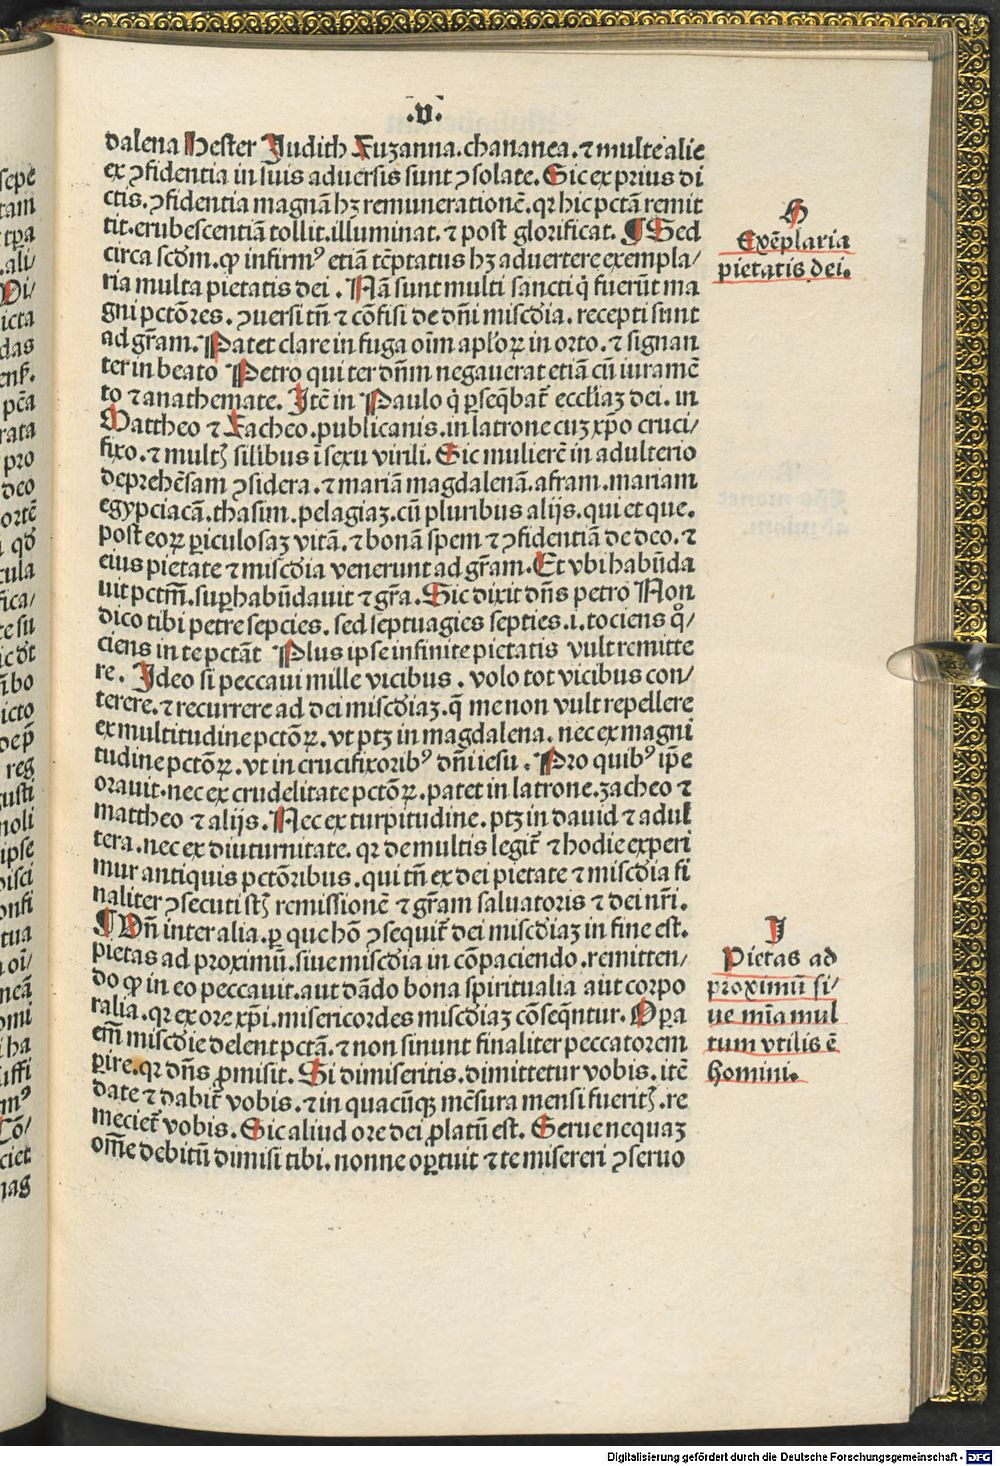 .v.
dalena Hester Judith Suzanna. chananea. ⁊ multe alie
ex ꝯfidentia in suis aduersis sunt ꝯsolate. Sic ex prius di
ctis. ꝯfidentia magnā hꝫ remunerationē. qꝛ hic pctā remit
tit. erubescentiā tollit. illuminat. ⁊ post glorificat. ¶ Sed
circa scdm. ꝙ infirmꝰ etiā tēptatus hꝫ aduertere exempla/
ria multa pietatis dei. Nā sunt multi sancti q̇ fuerūt ma
gni pctōres. ꝯuersi tn̄ ⁊ cōfisi de dn̄i miscdia. recepti sunt
ad gr̄am. Patet clare in fuga oīm apl'oꝝ in orto. ⁊ signan
ter in beato Petro qui ter dn̄m negauerat etiā cū iuramē
to ⁊ anathemate. Itē in Paulo q̇ ꝑseqbat̄ eccl'iaꝫ dei. in
Mattheo ⁊ Zacheo. publicanis. in latrone cuꝫ xp̄o cruci/
fixo. ⁊ multꝭ silibus ī sexu virili. Sic mulierē in adulterio
deprehēsam ꝯsidera. ⁊ mariā magdalenā. afram. mariam
egypciacā. thasim. pelagiaꝫ. cū pluribus alijs. qui et que.
post eoꝝ ꝑiculosaꝫ vitā. ⁊ bonā spem ⁊ ꝯfidentiā de deo. ⁊
eius pietate ⁊ miscdia venerunt ad gr̄am. Et vbi habūda
uit pctm̄. suꝑhabūdauit ⁊ gr̄a. Sic dixit dn̄s petro Non
dico tibi petre sepcies. sed septuagies septies. i. tociens qͦ/
ciens in te pctāt Plus ipse infinite pietatis vult remitte
re. Ideo si peccaui mille vicibus. volo tot vicibus con/
terere. ⁊ recurrere ad dei miscdiaꝫ. q̄ me non vult repellere
ex multitudine pctōꝝ. vt ptꝫ in magdalena. nec ex magni
tudine pctōꝝ. vt in crucifixoribꝰ dn̄i iesu. Pro quibꝰ ip̄e
orauit. nec ex crudelitate pctōꝝ. patet in latrone. zacheo ⁊
mattheo ⁊ alijs. Nec ex turpitudine. ptꝫ in dauid ⁊ adul
tera. nec ex diuturnitate. qꝛ de multis legit̄ ⁊ hodie experi
mur antiquis pctōribus. qui tn̄ ex dei pietate ⁊ miscdia fi
naliter ꝯsecuti stꝭ remissionē ⁊ gr̄am saluatoris ⁊ dei nr̄i.
¶ Un̄ inter alia. ꝑ que hō ꝯsequit̄ dei miscdiaꝫ in fine est.
pietas ad proximū. siue miscdia in cōpaciendo. remitten/
do ꝙ in eo peccauit. aut dādo bona spiritualia aut corpo
ralia. qꝛ ex ore xp̄i. misericordes miscdiaꝫ cōseqūtur. Oꝑa
em̄ miscdie delent pctā. ⁊ non sinunt finaliter peccatorem
ꝑire. qꝛ dn̄s ꝓmisit. Si dimiseritis. dimittetur vobis. itē
date ⁊ dabit̄ vobis. ⁊ in quacūqꝫ mēsura mensi fueritꝭ. re
meciet̄ vobis. Sic aliud ore dei ꝓlatū est. Serue nequaꝫ
om̄e debitū dimisi tibi. nonne oꝑtuit ⁊ te misereri ꝯseruo
H
Exēplaria
pietatis dei.
I
Pietas ad
proximū si/
ue mīa mul
tum vtilis ē
homini.
Digitalisierung gefördert durch die Deutsche Forschungsgemeinschaft - DFG